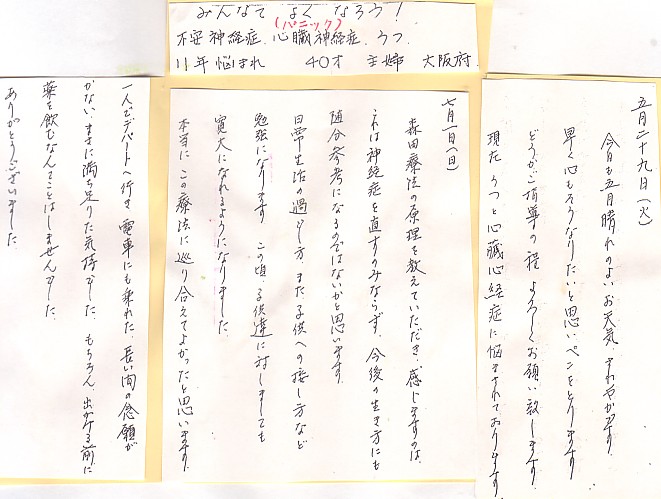 みんなでよくなろう!
(パニック)
不安神経症、心臓神経症、うつ
11年悩まれ 40才 主婦 大阪府
五月二十九日(火)
今日も五月晴れのよいお天気、さわやかです。
早く心もそうなりたいと思いペンをとります
どうかご指導の程よろしくお願い致します。
現在うつと心臓神経症に悩まされております。
七月一日(日)
森田療法の原理を教えていただき、感じますのは、
これは神経症を直すのみならず、今後の生き方にも
随分参考になるのではないかと思います。
日常生活の過ごし方、また、子供への接し方など
勉強になります この頃、子供達に対しましても
寛大になれるようになりました。
本当に、この療法に巡り合えてよかったと思います。
一人でデパートへ行き、電車にも乗れた。長い間の念願が
かない、まさに満ち足りた気持でした。もちろん、出かける前に
薬を飲むなんてことはしませんでした。
ありがとうございました。